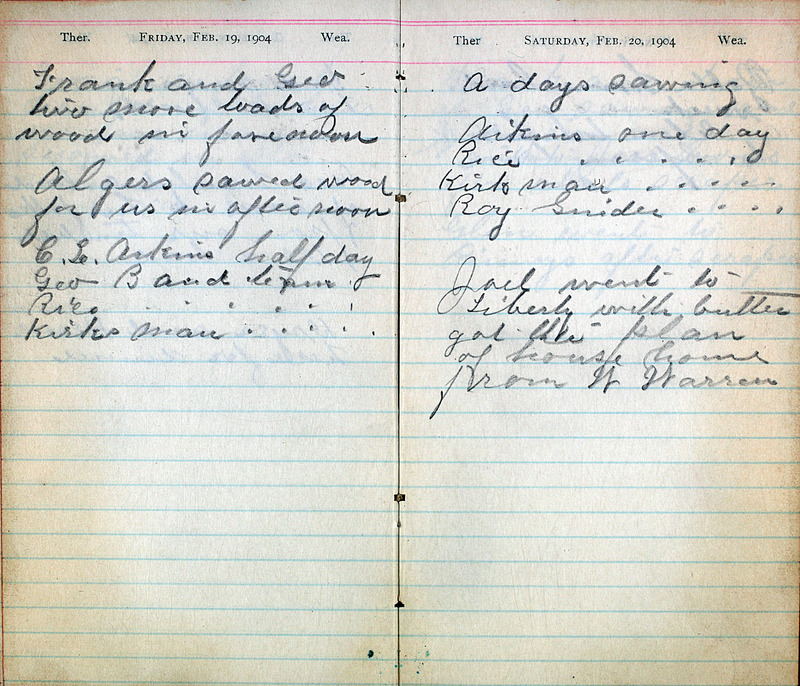 Ther. FRIDAY, FEB. 19, 1904 Wea.
Frank and Geo
two more loads of
wood in forenoon
Algers sawed wood
for us in afternoon
C. L. Aitkins half day
Geo B and team "
Rice " " " "
Kirks man " " " " "
Ther SATURDAY, FEB. 20, 1904 Wea.
A days sawing
Aitkins one day
Rice " " " "
Kirks man " " " "
Roy Snider " " " "
Joel went to
Liberty with butter
got the plan
of house home
from W Warren